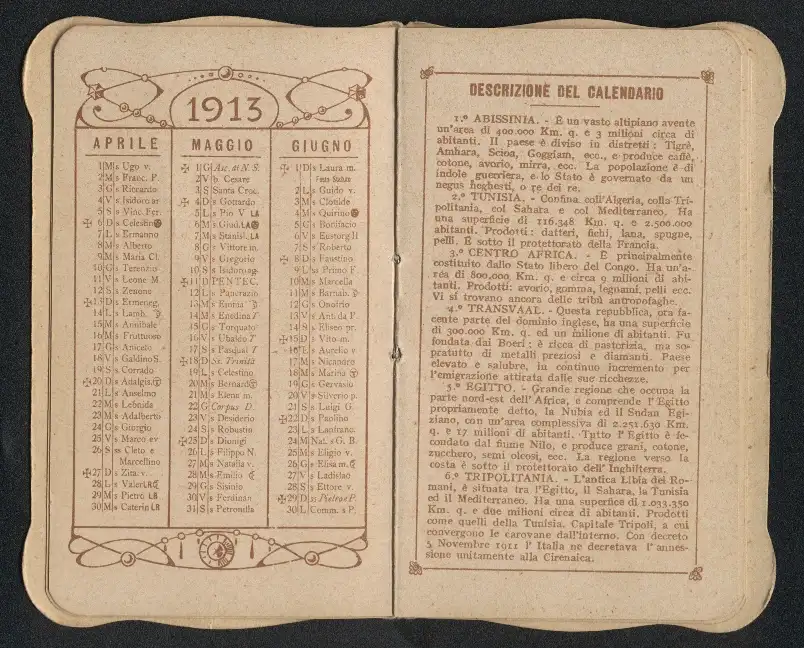 1913
APRILE
1 M s Ugo v.
2 M s Franc. P.
3 G s Riccardo
4 V s Isidoro ar
5 S s Vinc. Fer.
✠ 6 D s Celestino
7 L s Ermanno
8 M s Alberto
9 M s Maria Cl.
10 G s Terenzio
11 V s Leone M.
12 S s Zenone
✠13 D s Ermeneg.
14 L s Lamb.
15 M s Annibale
16 M s Fruttuoso
17 G s Aniceto
18 V s Galdino S.
19 S s Corrado
✠20 D s Adalgis.
21 L s Anselmo
22 M s Leonida
23 M s Adalberto
24 G s Giorgio
25 V s Marco ev
26 S ss Cleto e
Marcellino
✠27 D s Zita v.
28 L s Valer LR
29 M s Pietro LR
30 M s Caterin LR
MAGGIO
✠ 1 G Asc. di N. S.
2 V b Cesare
3 S Santa Croc.
✠ 4 D s Gottardo
5 L s Pio V LA
6 M s Giud. LA
7 M s Stanisl. LA
8 G s Vittore m.
9 V s Gregorio
10 S s Isidoro ag.
✠11 D PENTEC.
12 L s Pancrazio
13 M s Emma
14 M s Enedina T
15 G s Torquato
16 V s Ubaldo T
17 S s Pasqual T
✠18 D Ss. Trinità
19 L s Celestino
20 M s Bernard
21 M s Elena m.
22 G Corpus D.
23 V s Desiderio
24 S s Robustin
✠25 D s Dionigi
26 L s Filippo N.
27 M s Natalia v.
28 M s Emilio
29 G s Sisinio
30 V s Ferdinan
31 S s Petronilla
GIUGNO
✠ 1 D s Laura m.
Festa Statuto
2 L s Guido v.
3 M s Clotilde
4 M s Quirino
5 G s Bonifacio
6 V s Eustorg II
7 S s Roberto
✠ 8 D s Faustino
9 L ss Primo F.
10 M s Marcella
11 M s Barnab.
12 G s Onofrio
13 V s Ant. da P.
14 S s Eliseo pr.
✠15 D s Vito m.
16 L s Aurelio v
17 M s Nicandro
18 M s Marina
19 G s Gervasio
20 V s Silverio p.
21 S s Luigi G.
✠22 D s Paolino
23 L s Lanfranc.
24 M Nat. s G. B.
25 M s Eligio v.
26 G s Elisa m.
27 V s Ladislao
28 S s Ettore v.
✠29 D ss Pietro e P.
30 L Comm. s P.
DESCRIZIONE DEL CALENDARIO
1.° ABISSINIA. - È un vasto altipiano avente
un'area di 400.000 Km. q. e 3 milioni circa di
abitanti. Il paese è diviso in distretti: Tigrè,
Amhara, Scioa, Goggiam, ecc., e produce caffè,
cotone, avorio, mirra, ecc. La popolazione è di
indole guerriera, e lo Stato è governato da un
negus neghesti, o re dei re.
2.° TUNISIA. - Confina coll'Algeria, colla Tri-
politania, col Sahara e col Mediterraneo. Ha
una superficie di 116.348 Km. q. e 2.500.000
abitanti. Prodotti: datteri, fichi, lana, spugne,
pelli. È sotto il protettorato della Francia.
3.° CENTRO AFRICA. - È principalmente
costituito dallo Stato libero del Congo. Ha un'a-
rea di 800.000 Km. q. e circa 9 milioni di abi-
tanti. Prodotti: avorio, gomma, legnami, pelli ecc.
Vi si trovano ancora delle tribù antropofaghe.
4.° TRANSVAAL. - Questa repubblica, ora fa-
cente parte del dominio inglese, ha una superficie
di 300.000 Km. q. ed un milione di abitanti. Fu
fondata dai Boeri; è ricca di pastorizia, ma so-
pratutto di metalli preziosi e diamanti. Paese
elevato e salubre, in continuo incremento per
l'emigrazione attirata dalle sue ricchezze.
5.° EGITTO. - Grande regione che occupa la
parte nord-est dell'Africa, e comprende l'Egitto
propriamente detto, la Nubia ed il Sudan Egi-
ziano, con un'area complessiva di 2.251.630 Km.
q. e 17 milioni di abitanti. Tutto l'Egitto è fe-
condato dal fiume Nilo, e produce grani, cotone,
zucchero, semi oleosi, ecc. La regione verso la
costa è sotto il protettorato dell'Inghilterra.
6.° TRIPOLITANIA. - L'antica Libia dei Ro-
mani, è situata tra l'Egitto, il Sahara, la Tunisia
ed il Mediterraneo. Ha una superfice di 1.033.350
Km. q. e due milioni circa di abitanti. Prodotti
come quelli della Tunisia. Capitale Tripoli, a cui
convergono le carovane dall'interno. Con decreto
5 Novembre 1911 l'Italia ne decretava l'annes-
sione unitamente alla Cirenaica.